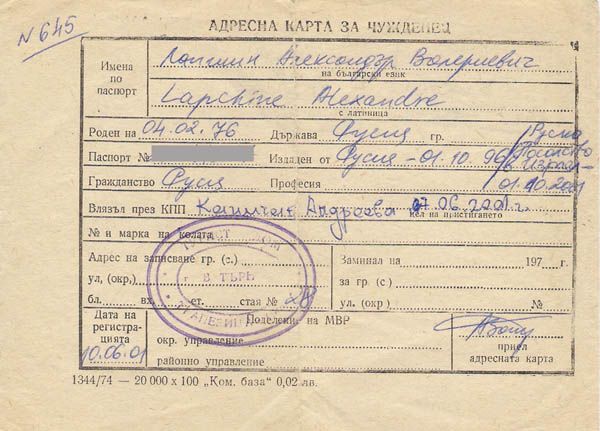 N 645
АДРЕСНА КАРТА ЗА ЧУЖДЕНЕЦ
Имена по паспорт
Лапшин Александър Валериевич
на български език
Lapchine Alexandre
с латиница
Роден на 04.02.76 Държава Русия гр.
Руско Посолство в Израел
Паспорт № Издаден от Русия - 01.10.96
01.10.2001
Гражданство Русия Професия
Влязъл през КПП Капитан Андреево 07.06.2001г.
цел на пристигането
№ и марка на колата
Адрес на записване гр. (с.)
ул, (окр.)
бл. вх. ет. стая № 28
ТУРИСТ ДОМ
В. ТЪРН
ТРАПЕЗИЦА
Заминал на 197 г.
за гр. (с.)
ул. (окр.) №
Дата на регистрацията
10.06.01
Поделение на МВР
окр. управление
районно управление
приел адресната карта
1344/74 — 20 000 х 100 „Ком. база" 0,02 лв.